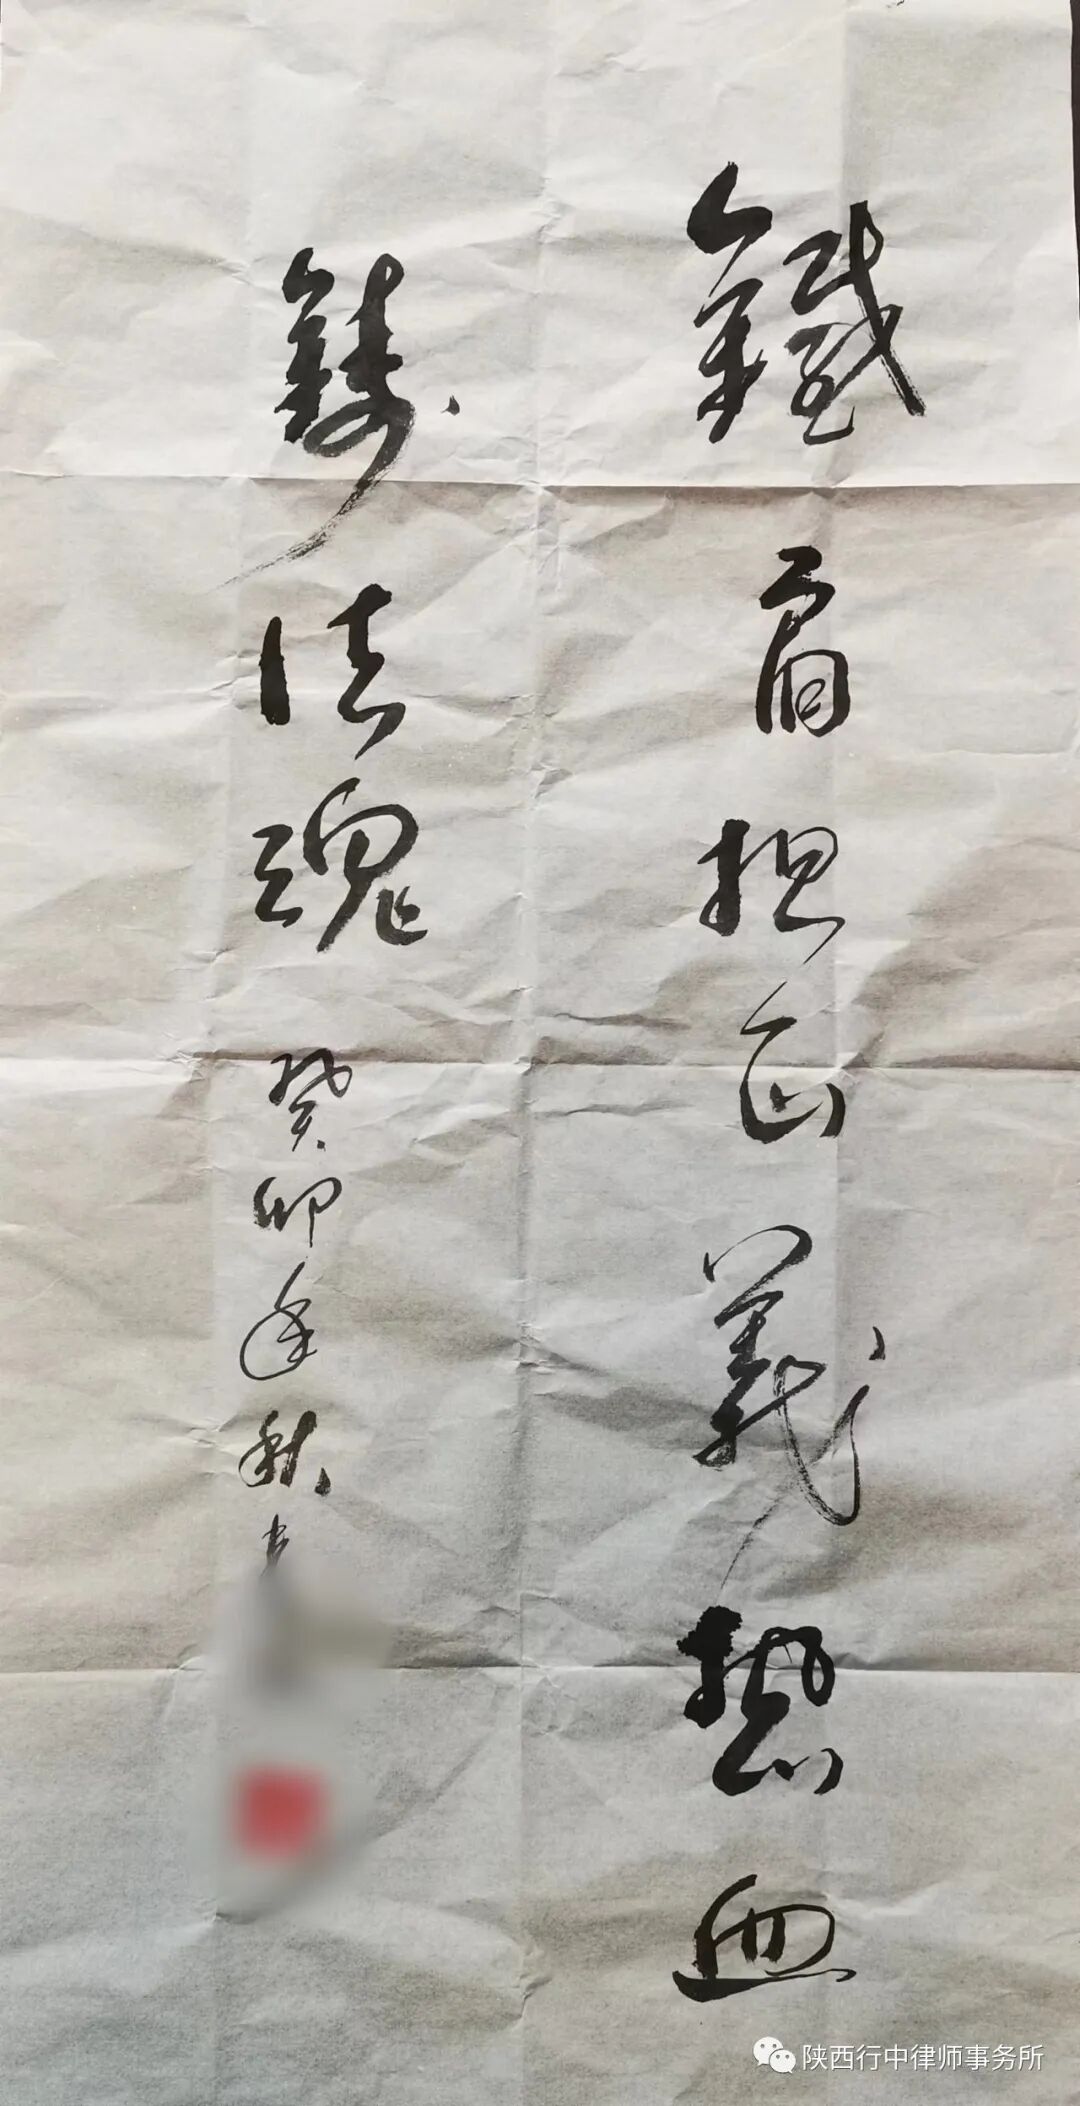 鐵肩担正義熱血
鑄法魂 癸卯年秋
陕西行中律师事务所